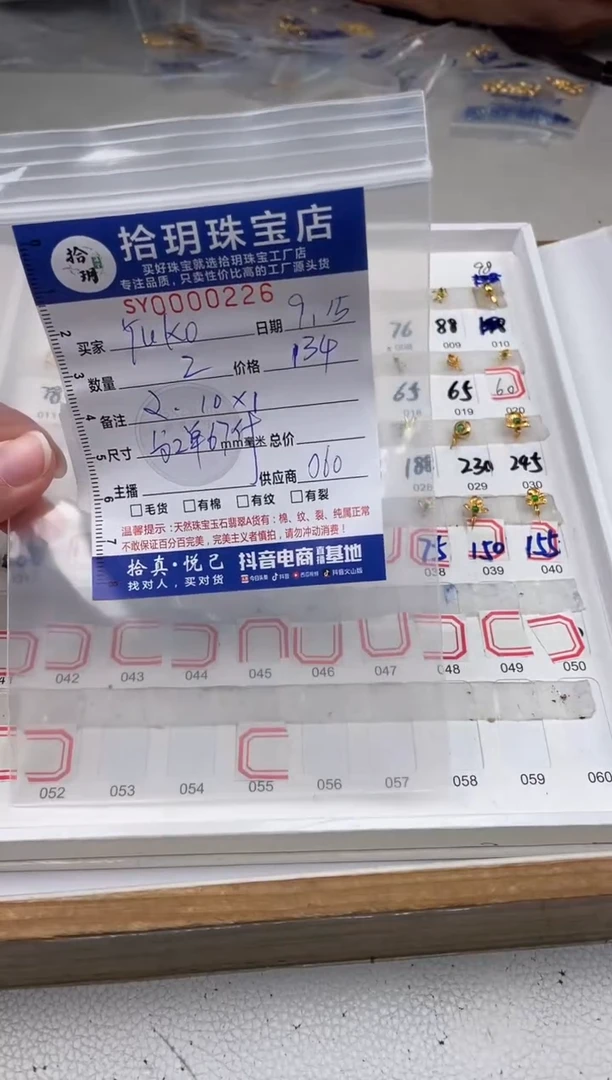 拾玥
拾玥珠宝店
买好珠宝就选拾玥珠宝工厂店
专注品质,只卖性价比高的工厂源头货
SY0000226
买家 YUKO 日期 9.15
数量 2 价格 134
备注 2.10×1
尺寸 mm毫米 总价
主播 供应商 060
毛货 有棉 有纹 有裂
温馨提示:天然珠宝玉石翡翠A货有:棉、纹、裂、纯属正常
不敢保证百分百完美,完美主义者慎拍,请勿冲动消费!
拾真·悦己 抖音电商直播基地
找对人,买对货 今日头条 抖音 西瓜视频 抖音火山版
2
3
4
5
6
7
98
76 88
009 010
65 65 60
019 020
188 230 245
028 029 030
75 150 155
038 039 040
042 043 044 045 046 047 048 049 050
052 053 054 055 056 057 058 059 060